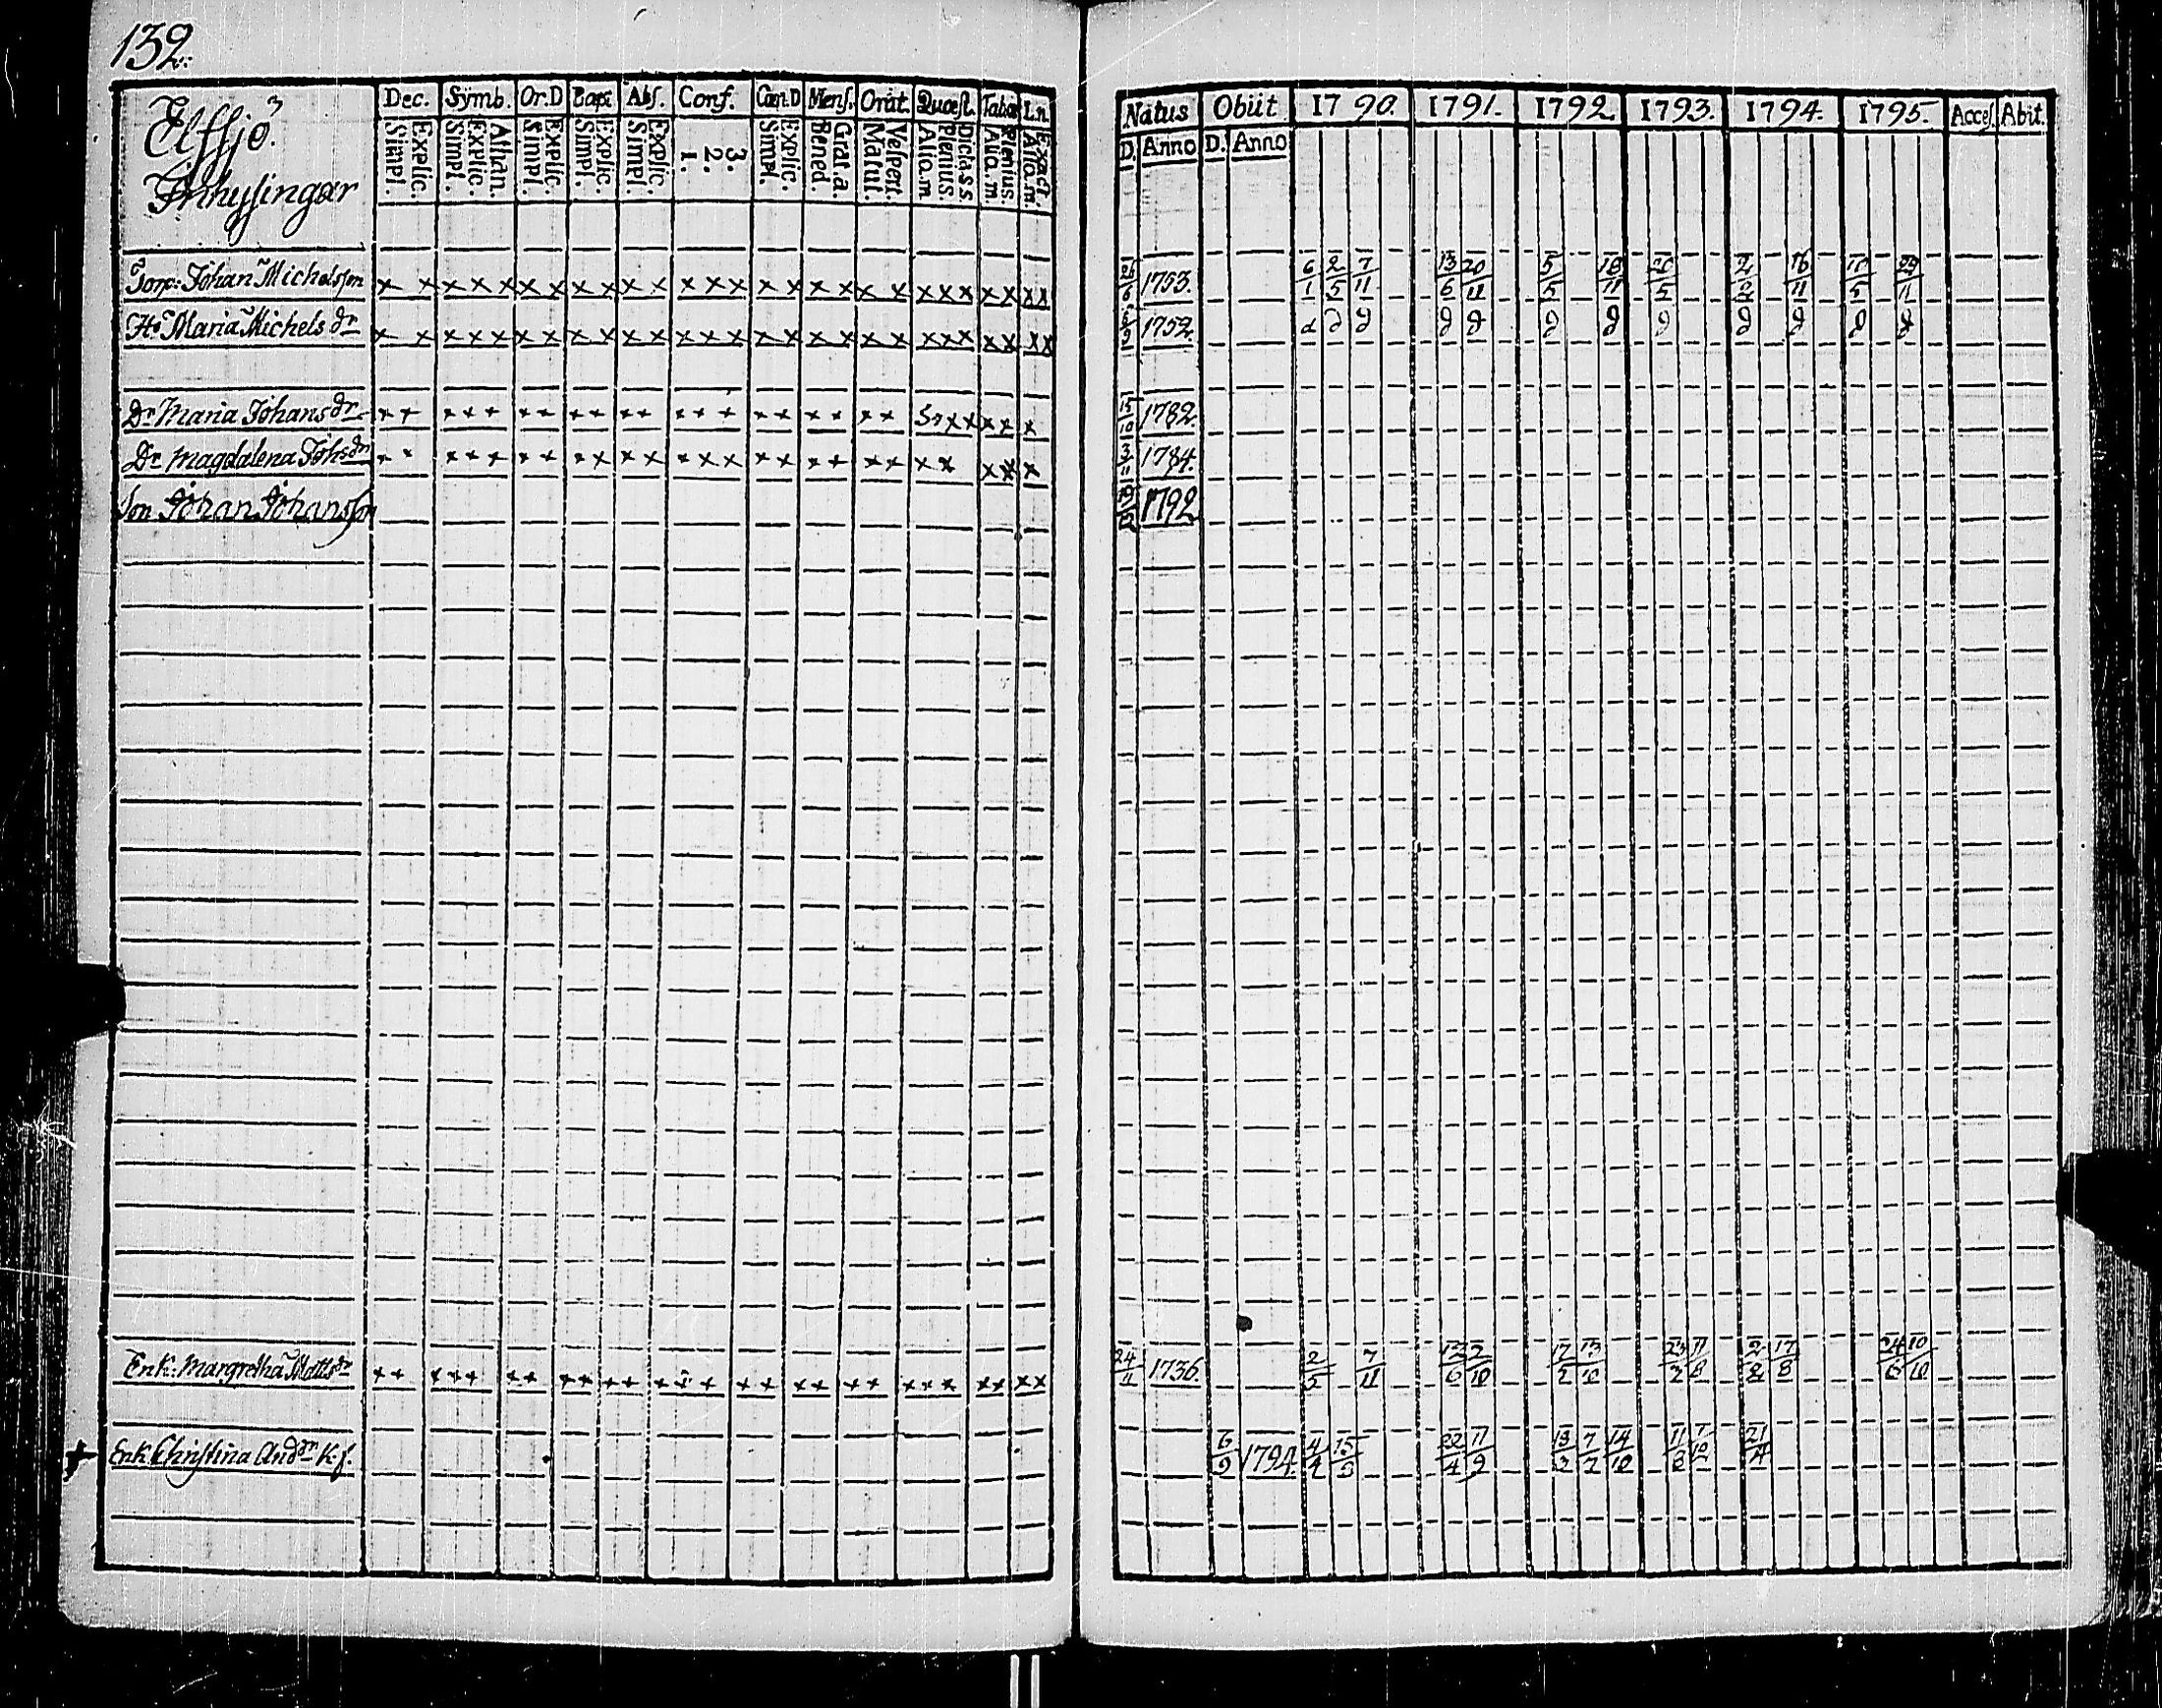 132.
Elffjö. 3
Inhysingar
Dec. Symb. Or.D Bapt. Abs. Conf. Cœn.D Mens. Orat. Quæst. Tabœ Ln.
Simpl. Explic. Simpl. Explic. Athan. Simpl. Explic. Simpl. Explic. Simpl. Explic. 1. 2. 3. Simpl. Explic. Bened. Grat.a. Matut. Vespert. Aliq.m Plenius. Dicta.s.s. Aliq.m Plenius. Aliq.m. Exact
Natus Obiit 1790. 1791. 1792 1793. 1794. 1795. Acces. Abit.
D. Anno D. Anno
Torp: Johan Michelsson x x x x x x x x x x x x x x x x x x x x x x x x x x x 26/6 1753. 6/1 2/5 7/11 13/6 20/11 5/5 18/11 26/5 2/2 16/11 10/5 29/11
H. Maria Michels dr x x x x x x x x x x x x x x x x x x x x x x x x x x x 1752.
Dr Maria Johans dr x x x x x x x x x x x x x x x x x x x x x x x x x 15/10 1782.
Dr Magdalena Johs dr x x x x x x x x x x x x x x x x x x x x x x x x 3/11 1784.
Son Johan Johansson 1792
Enk: Margretha Matts dr x x x x x x x x x x x x x x x x x x x x x x x x x x x 24/11 1736. 2/5 7/11 13/6 2/10 17/2 13/10 23/2 11/8 2/2 17/8 24/6 10/10
+ Enk Christina And dr K. f. 6/9 1794. 4/2 15/8 22/4 11/9 18/3 7/7 14/10 11/6 7/10 21/4